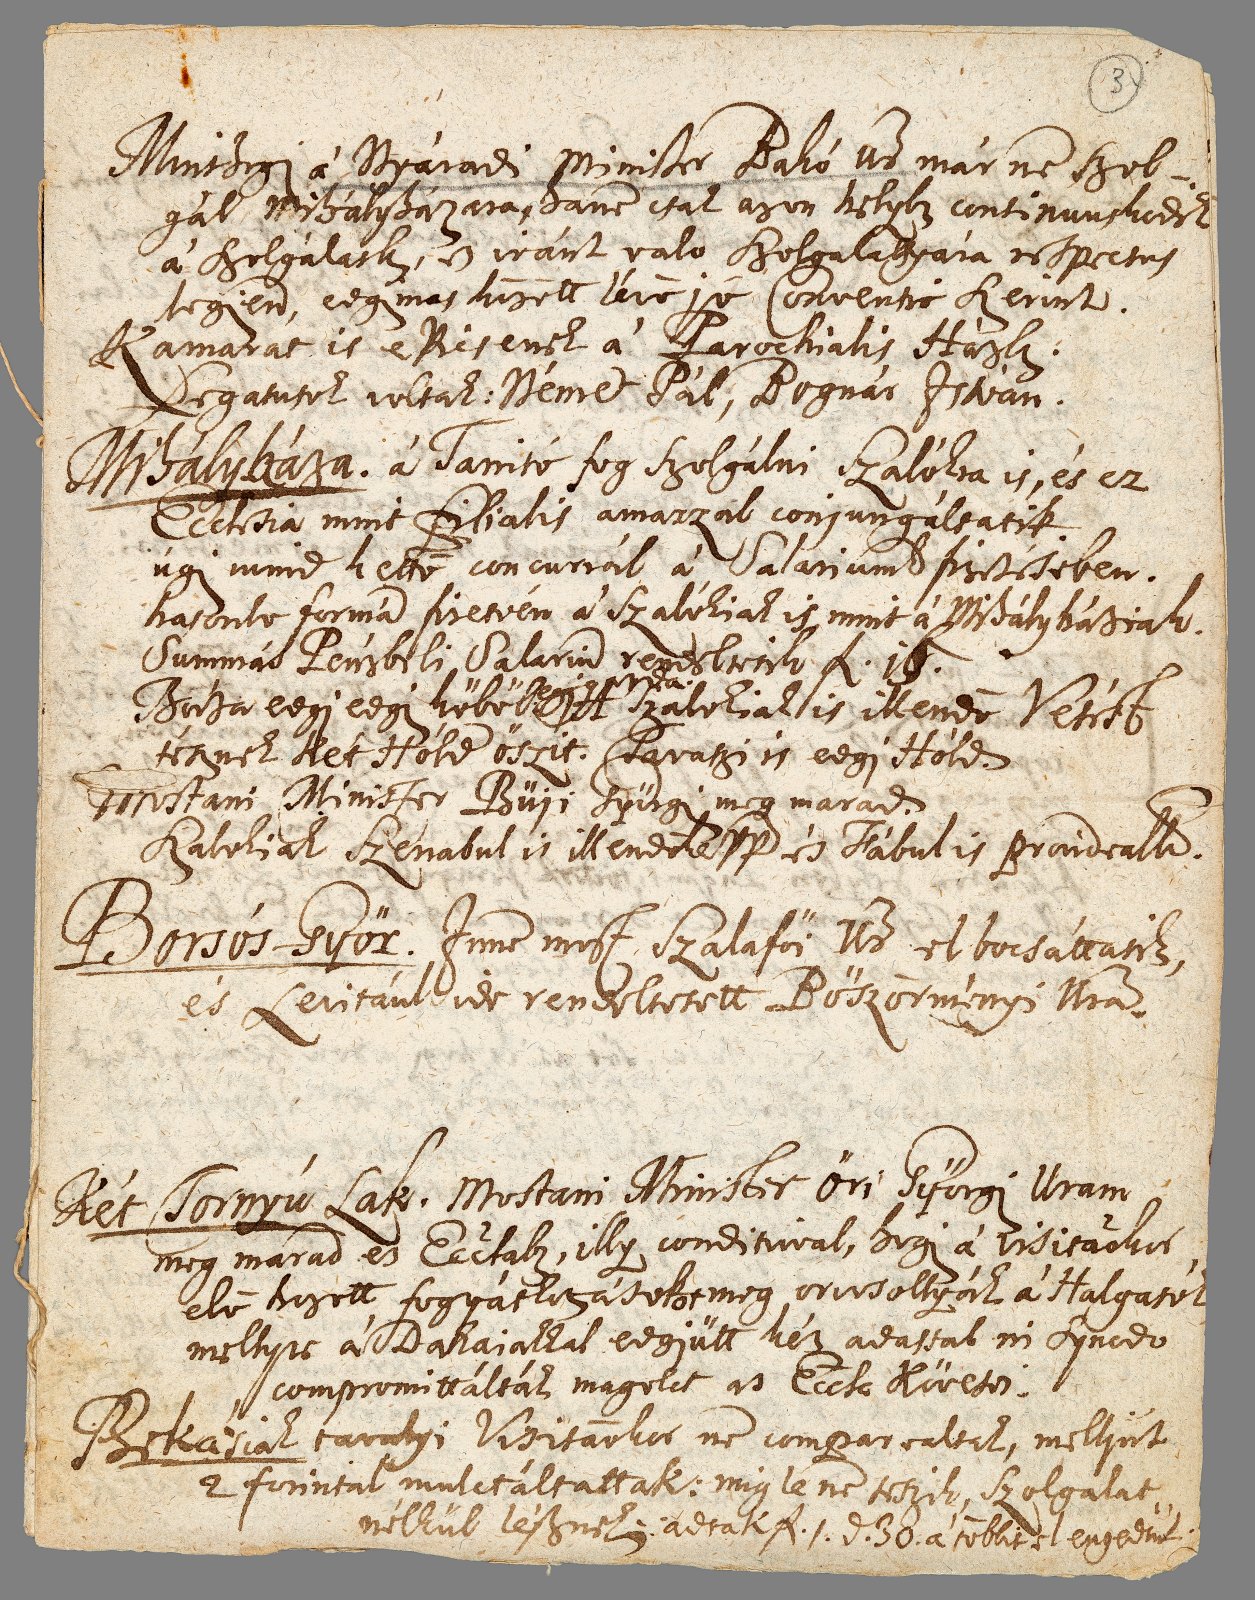 3
Minthogj á Nyáradi Minister Bakó Ur már nē szol-
gál Mihályházara, hanē csak azon helyb continuuskodik
á szolgálatb, ez iránt valo szolgalattyára respectus
legjen, eggj mas között lévē jó Conventio szerint.
Kamarat is epicsenek á Parochialis Házb.
Legatusok voltak: Német Pál, Bognár István.
Mihályháza. á Tanito fog szolgálni Szalókra is, és ez
Ecclesia mint filialis amazzal conjungáltatik
úgj mind kettō concurrál á Salariumb fizetésében.
hasonlo formán fizetvén á Szalókiak is mint á Mihályháziak.
Summás Pénzbéli Salariū rendeltetik f. 16.
Buza edgj edgj köböl Szalokiak is illendō Vetést
tésznek két Hold őszit. Tavaszi is edgj Hold.
Mostani Minister Büji György meg marad.
Szalokiak Szénabul is illendōképp és Fábul is provideallȳ.
Borsós-Győr. Innē most Szalafői Ur el bocsáttatik,
és Levitául ide rendeltetett Böszörményi Urā.
Két Tornyú Lak. Mostani Minister Őri Győrgj Uram
meg márad ez Ecclab, illy conditioval, hogj á Visitatiokor
elō hozott fogyátkozásokot meg orvosollyák á Halgatók
mellyre á Dakaiakkal edgjütt kéz adassal in Synodo
compromittálták magokat az Eccla Követei.
Bekásiak tavalyi Visitatiokor nē comparealtak, mellyért
2 forintal mulctáltattak: mig le nē teszik, szolgalat
nélkül lésznek. adtak f. 1. d. 30. á többit el engedtük.